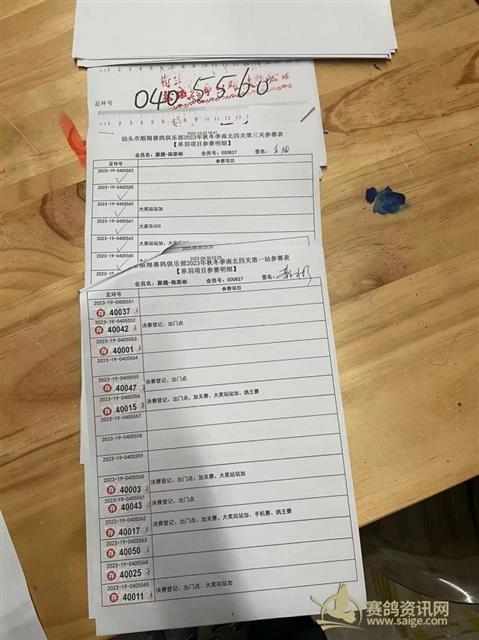 足环号 0405560
汕头市顺翔赛鸽俱乐部2023年秋冬季南北四关第三关参赛表
【单羽项目参赛明细】
会员名：聚鹏-陈斯彬 会员号：000827 签名：
足环号 参赛项目
2023-19-0405552
2023-19-0405555
2023-19-0405560 大奖站站加
2023-19-0405561 大家乐300
2023-19-0405562
市顺翔赛鸽俱乐部2023年秋冬季南北四关第一站参赛表
【单羽项目参赛明细】
会员名：聚鹏-陈斯彬 会员号：000827 签名：
足环号 参赛项目
2023-19-0405551
40037
2023-19-0405552 决赛登记，出门点
40042
2023-19-0405553
40001
2023-19-0405554
2023-19-0405555 决赛登记，出门点
40047
2023-19-0405556 决赛登记，出门点，加关赛，大奖站站加，鸽王赛
40015
2023-19-0405557
2023-19-0405558
2023-19-0405559
2023-19-0405560 决赛登记，出门点，加关赛，大奖站站加
40003
2023-19-0405561 决赛登记，出门点
40043
2023-19-0405562 决赛登记，出门点，加关赛，大奖站站加，手机赛，鸽王赛
40017
2023-19-0405563
40050
2023-19-0405564
40025
2023-19-0405565 决赛登记，出门点，大奖站站加
40011
赛鸽资讯网
www.saige.com